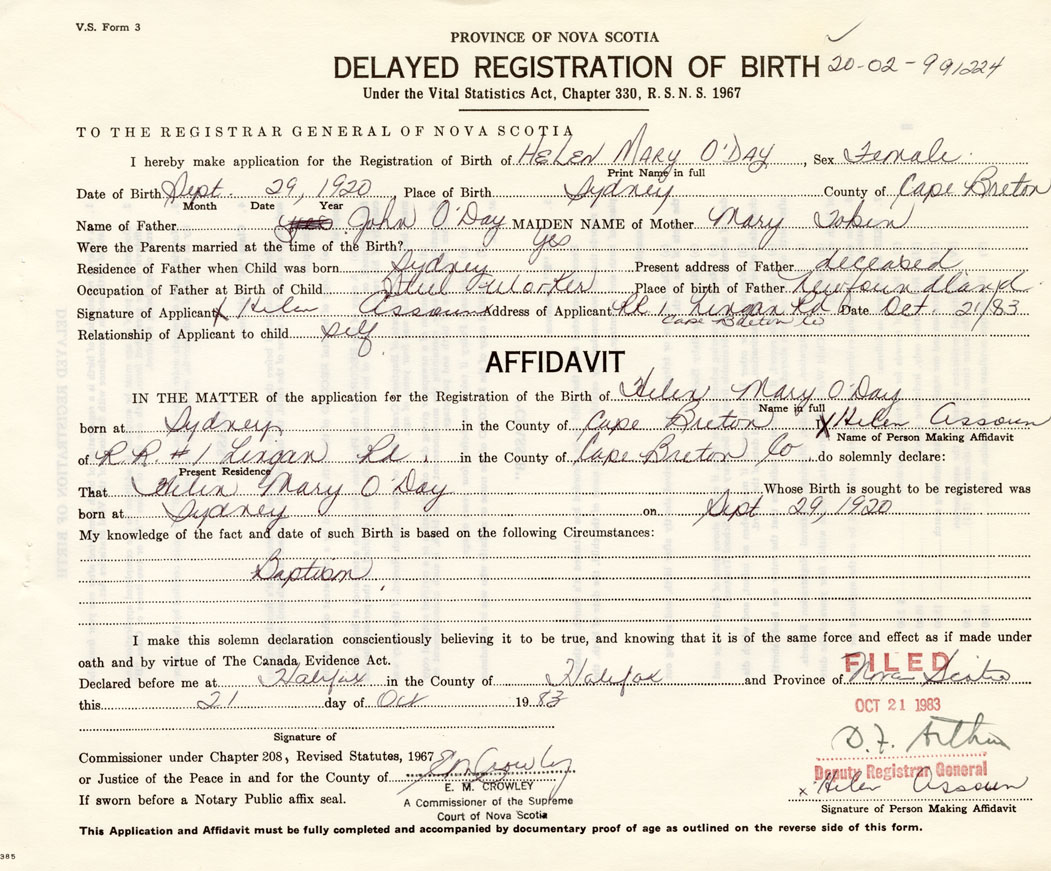 V.S. Form 3
PROVINCE OF NOVA SCOTIA
DELAYED REGISTRATION OF BIRTH 20-02-991224
Under the Vital Statistics Act, Chapter 330, R. S. N. S. 1967
TO THE REGISTRAR GENERAL OF NOVA SCOTIA
I hereby make application for the Registration of Birth of HELEN MARY O'DAY, Sex Female.
Print Name in full
Date of Birth Sept. 29, 1920 Place of Birth Sydney County of Cape Breton
Month Date Year
Name of Father John O'Day MAIDEN NAME of Mother Mary Tobin
Were the Parents married at the time of the Birth? Yes
Residence of Father when Child was born Sydney Present address of Father deceased
Occupation of Father at Birth of Child Steel Worker Place of birth of Father Newfoundland
Signature of Applicant X Helen Assoun Address of Applicant RR 1, Lingan Rd Date Oct. 21/83
Cape Breton Co
Relationship of Applicant to child self
AFFIDAVIT
IN THE MATTER of the application for the Registration of the Birth of Helen Mary O'Day
Name in full
born at Sydney in the County of Cape Breton I X Helen Assoun
Name of Person Making Affidavit
of R.R. #1 Lingan Rd., in the County of Cape Breton Co do solemnly declare:
Present Residence
That Helen Mary O'Day Whose Birth is sought to be registered was
born at Sydney on Sept 29, 1920
My knowledge of the fact and date of such Birth is based on the following Circumstances:
Baptism
I make this solemn declaration conscientiously believing it to be true, and knowing that it is of the same force and effect as if made under
oath and by virtue of The Canada Evidence Act.
FILED
Declared before me at Halifax in the County of Halifax and Province of Nova Scotia
this 21 day of Oct 19 83
OCT 21 1983
D.F. Arthur
Signature of
Commissioner under Chapter 208, Revised Statutes, 1967 E M Crowley
Deputy Registrar General
or Justice of the Peace in and for the County of
E. M. CROWLEY
x Helen Assoun
If sworn before a Notary Public affix seal.
A Commissioner of the Supreme
Court of Nova Scotia
Signature of Person Making Affidavit
This Application and Affidavit must be fully completed and accompanied by documentary proof of age as outlined on the reverse side of this form.
385